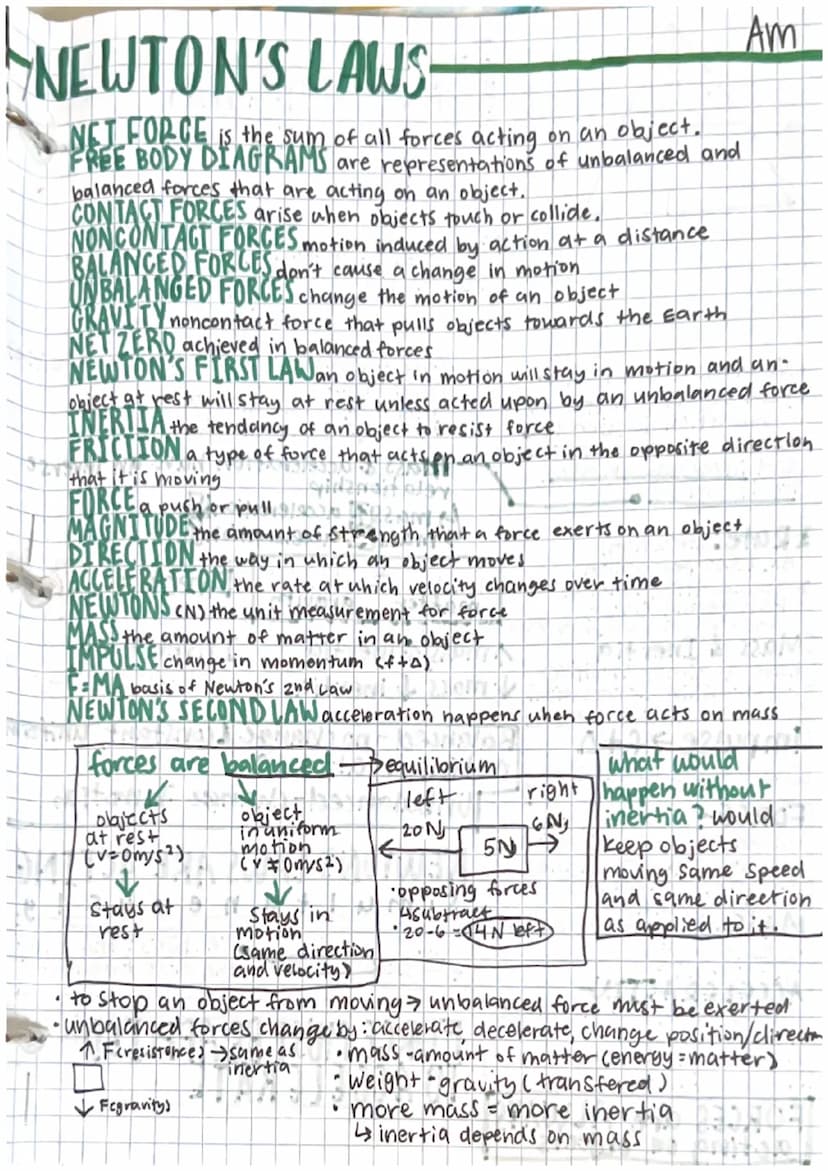 Am
NEWTON'S LAWS
NET FORCE is the sum of all forces acting on an object.
FREE BODY DIAGRAMS are representations of unbalanced and
balanced forces that are acting on an object.
CONTACT FORCES arise when objects touch or collide.
NONCONTACT FORCES motion induced by action at a distance
BALANCED FORCES don't cause a change in motion
UNBALANCED FORCES change the motion of an object
GRAVITY noncontact force that pulls objects towards the Earth
NET ZERO achieved in balanced forces
NEWTON'S FIRST LAW an object in motion will stay in motion and an-
object at rest will stay at rest unless acted upon by an unbalanced force
INERTIA the tendancy of an object to resist force
FRICTION a type of force that acts on an object in the opposite direction
that it is moving
FORCE a push or pull
MAGNITUDE the amount of strength that a force exerts on an object
DIRECTION the way in which an object moves
ACCELERATION the rate at which velocity changes over time
NEWTONS (N) the unit measurement for force
MASS the amount of matter in an object
IMPULSE change in momentum (f+Δ)
F=MA basis of Newton's 2nd Law
NEWTON'S SECOND LAW acceleration happens when force acts on mass
forces are balanced → equilibrium
objects
at rest
(v=0m/s²)
stays at
rest
object
in uniform
motion
(v ≠ 0m/s²)
stays in
motion
(same direction
and velocity)
left right
20N 6N
5N
• opposing forces
↳ subtract
• 20-6 = 14N left
what would
happen without
inertia? would
keep objects
moving same speed
and same direction
as applied to it.
• to stop an object from moving → unbalanced force must be exerted
• unbalanced forces change by: accelerate, decelerate, change position/directn
↑ F(resistence) → same as
inertia
↓ F(gravity)
• mass - amount of matter (energy = matter)
• weight - gravity (transfered)
• more mass = more inertia
↳ inertia depends on mass